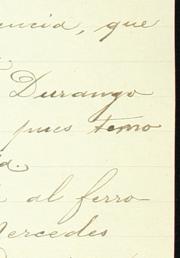 encia, que
Durango
pues temo
a.
al ferro
Mercedes